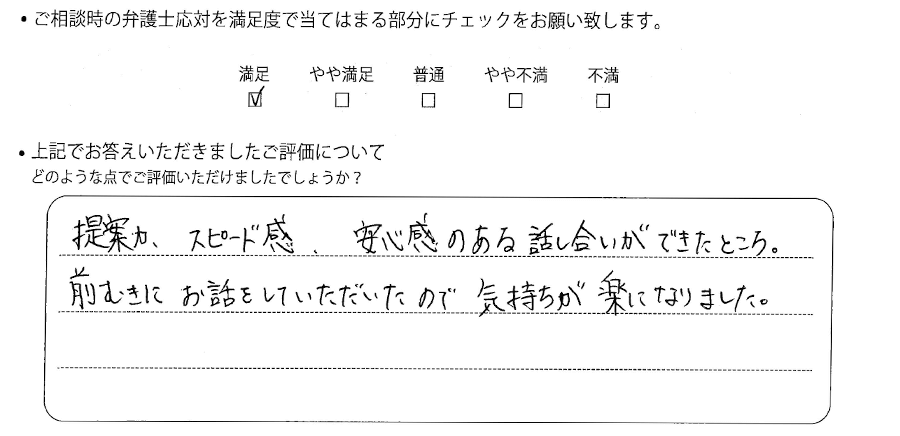 ・ご相談時の弁護士応対を満足度で当てはまる部分にチェックをお願い致します。
満足 やや満足 普通 やや不満 不満
☑ □ □ □ □
・上記でお答えいただきましたご評価について
どのような点でご評価いただけましたでしょうか?
提案力、スピード感、安心感のある話し合いができたところ。
前むきにお話をしていただいたので気持ちが楽になりました。